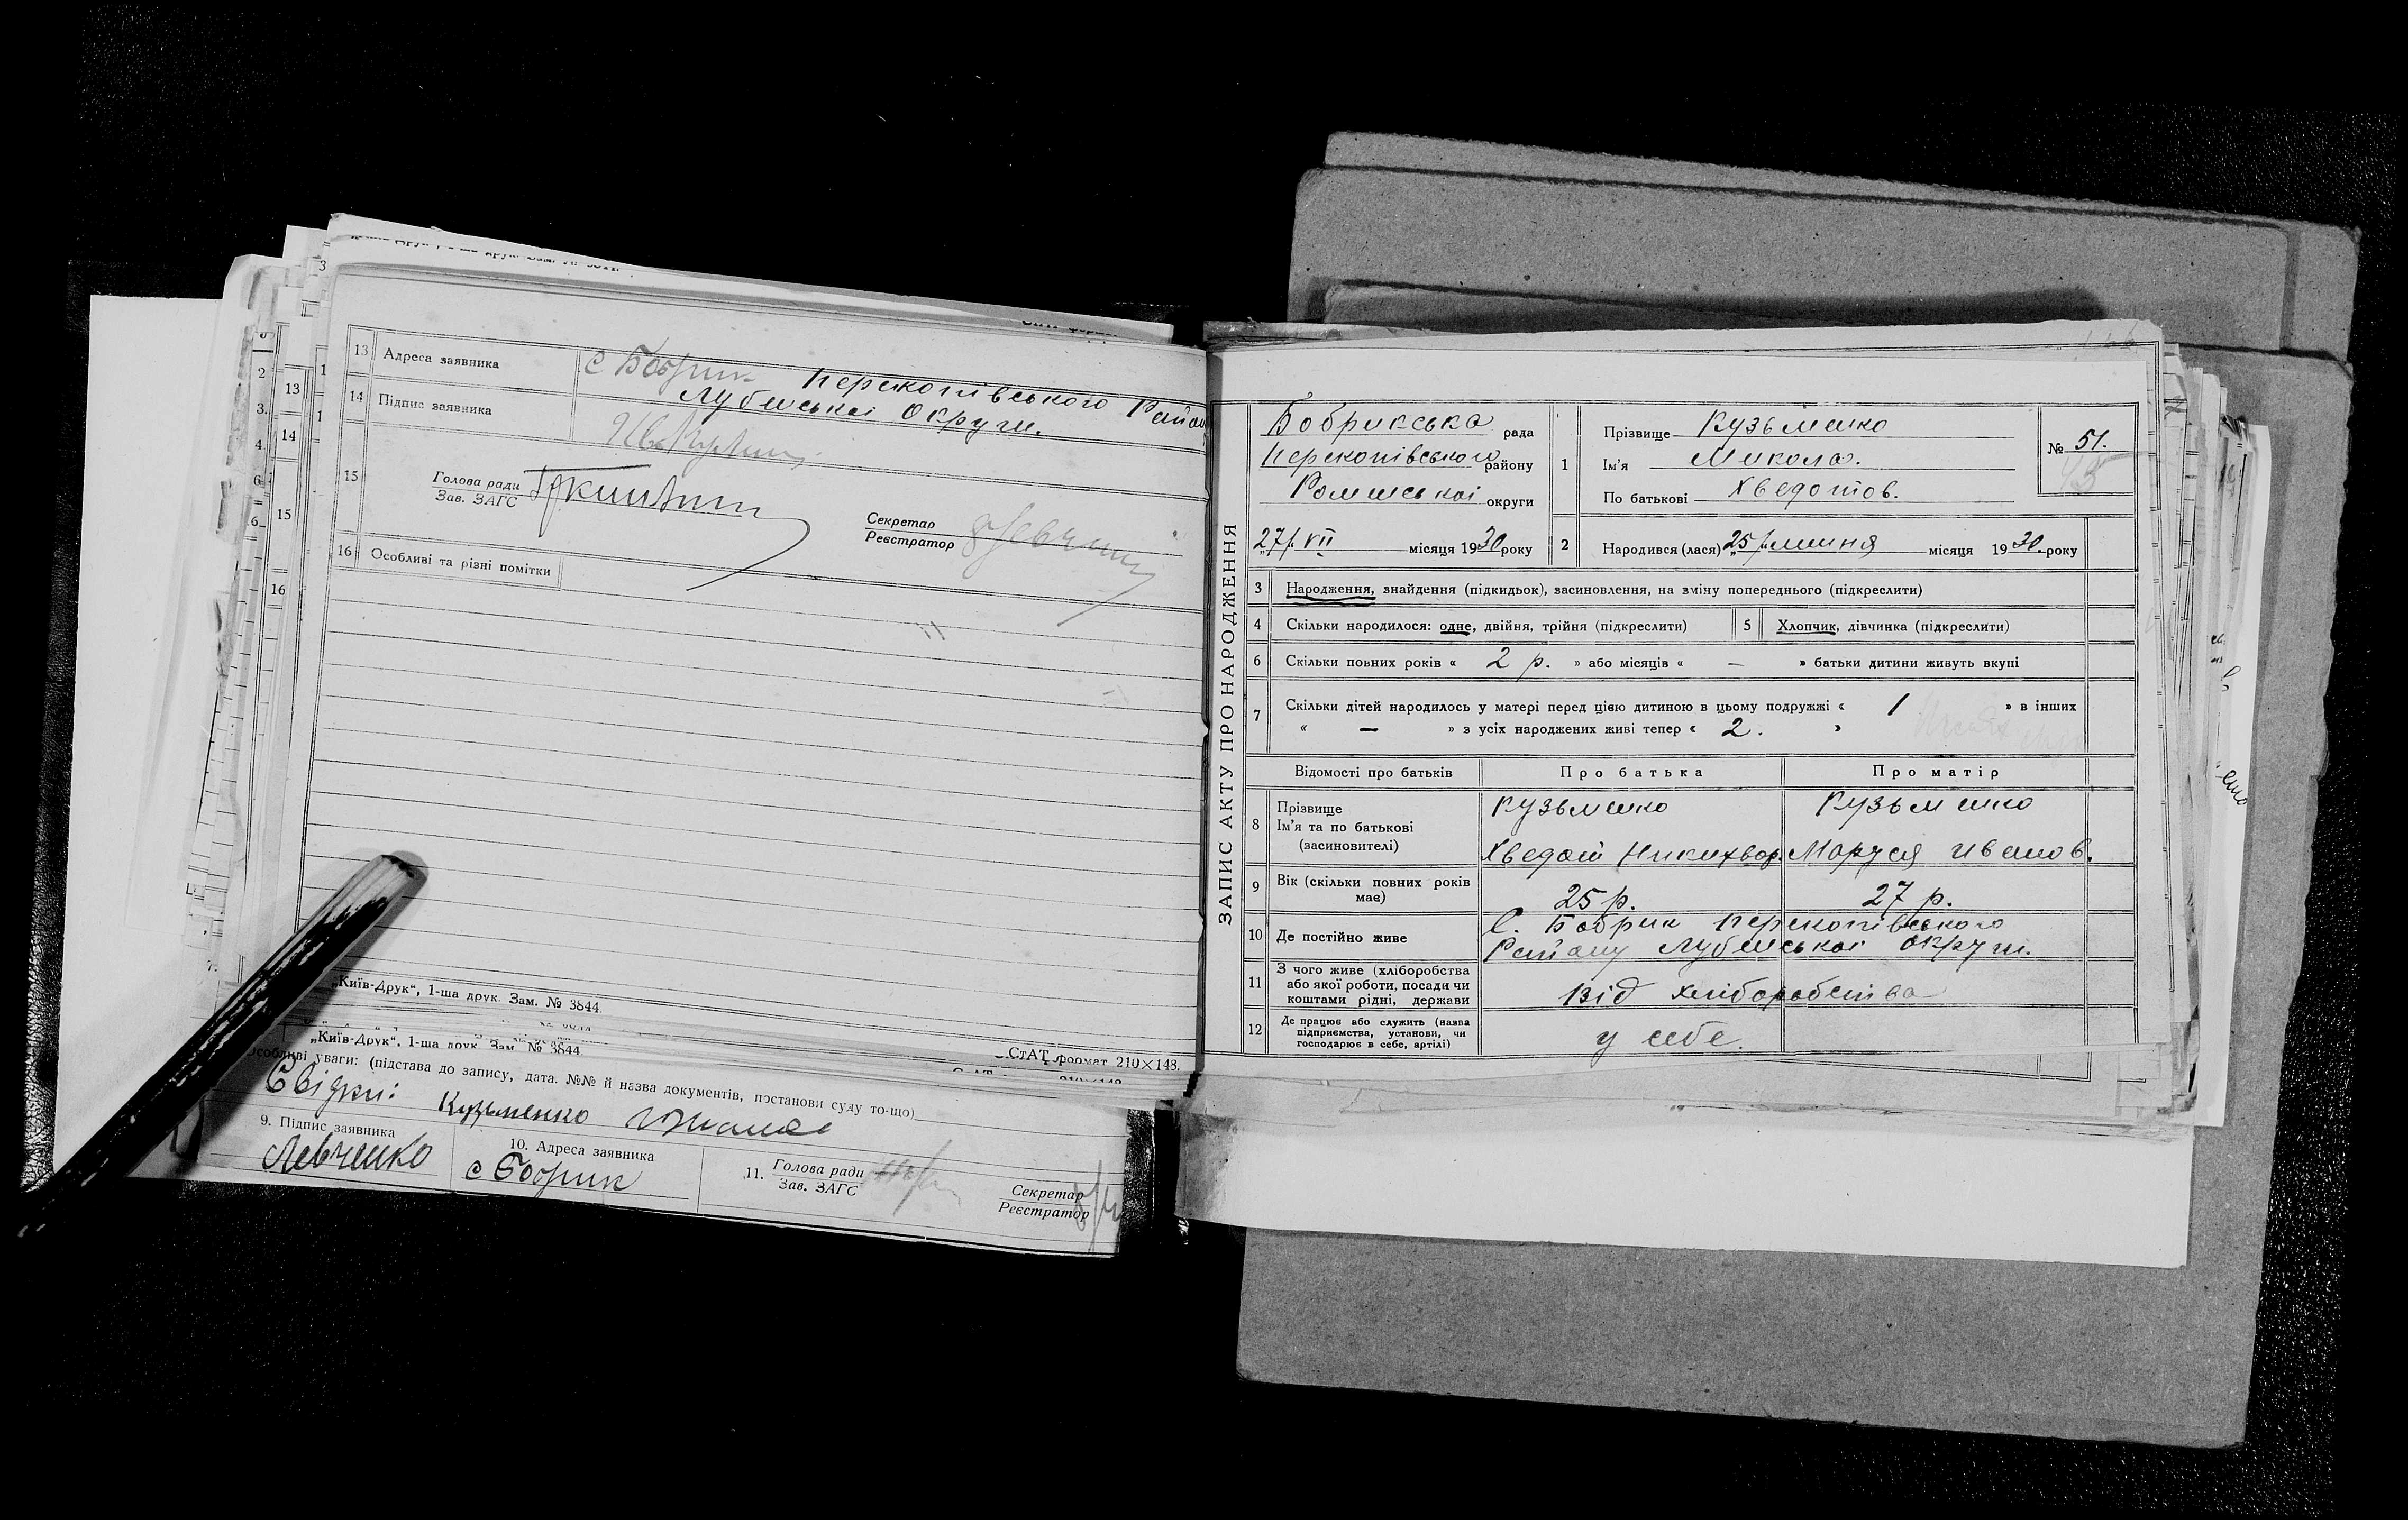 13 Адреса заявника с Бобрик Перекопівського Район
Лубенської Округи.
14 Підпис заявника
15 Голова ради
Зав. ЗАГС
Секретар
Реєстратор
16 Особливі та різні помітки
„Київ-Друк“, 1-ша друк. Зам. № 3844
„Київ-Друк“, 1-ша друк. Зам. № 3844
СтАТ формат 210×148.
Особливі уваги: (підстава до запису, дата. №№ й назва документів, постанови суду то-що)
Свідки: Кузьменко
9. Підпис заявника
Левченко
10. Адреса заявника
с Бобрик
11. Голова ради
Зав. ЗАГС
Секретар
Реєстратор
ЗАПИС АКТУ ПРО НАРОДЖЕННЯ
Бобрикська рада
Перекопівського району
Роменської округи
27/VII місяця 1930 року
1 Прізвище Кузьменко
Ім'я Микола.
По батькові Хведотов.
№ 51.
45
2 Народився (лася) „25/ липня місяця 1930 року
3 Народження, знайдення (підкидьок), засиновлення, на зміну попереднього (підкреслити)
4 Скільки народилося: одне, двійня, трійня (підкреслити) 5 Хлопчик, дівчинка (підкреслити)
6 Скільки повних років « 2 р. » або місяців « — » батьки дитини живуть вкупі
7 Скільки дітей народилось у матері перед цією дитиною в цьому подружжі « 1 » в інших
« — » з усіх народжених живі тепер « 2. »
Відомості про батьків Про батька Про матір
8 Прізвище
Ім'я та по батькові
(засиновителі)
Кузьменко Кузьменко
Хведот Никихвор. Маруся Иванов.
9 Вік (скільки повних років має) 25 р. 27 р.
10 Де постійно живе С. Бобрик Перекопівського
Району Лубенської округи.
11 З чого живе (хліборобства
або якої роботи, посади чи
коштами рідні, держави
Від хліборобства
12 Де працює або служить (назва
підприємства, установи, чи
господарює в себе, артілі)
у себе.